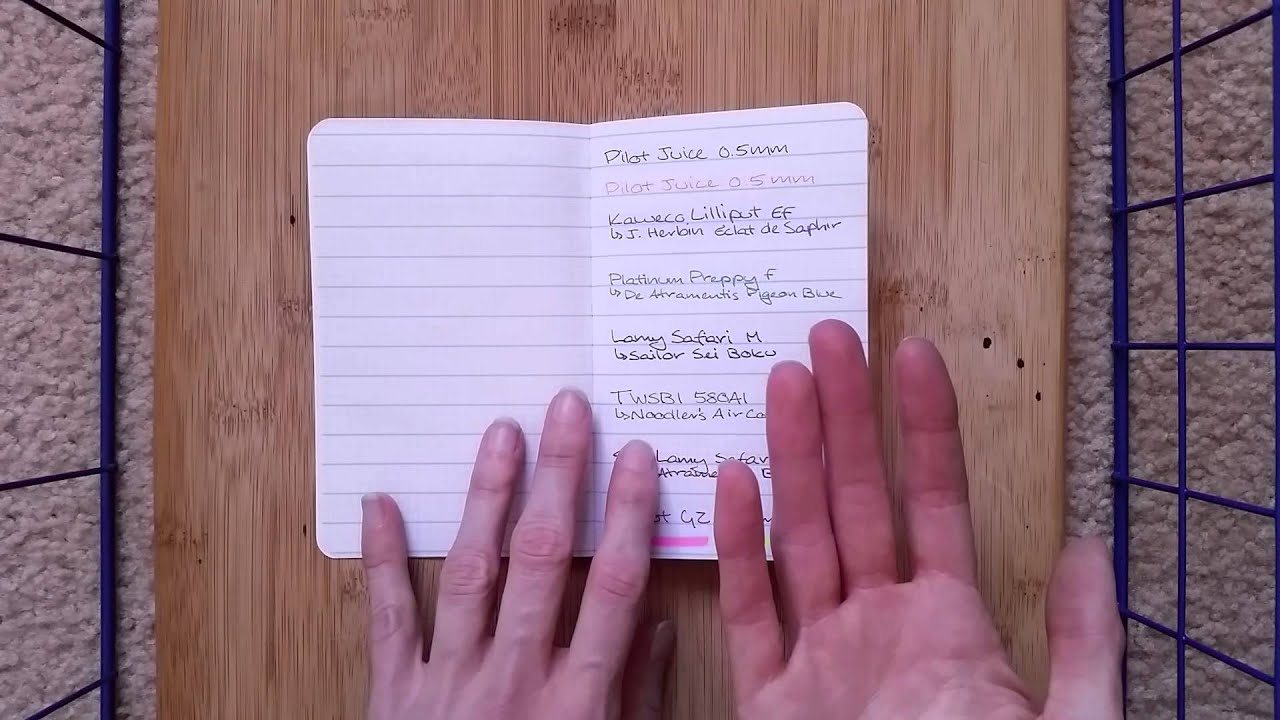 Pilot Juice 0.5mm
Pilot Juice 0.5mm
Kaweco Lilliput EF
↳ J. Herbin Eclat de Saphir
Platinum Preppy F
↳ De Atramentis Pigeon Blue
Lamy Safari M
↳ Sailor Sei Boku
TWSBI 580Al
↳ Noodler's Air
Lamy
G2